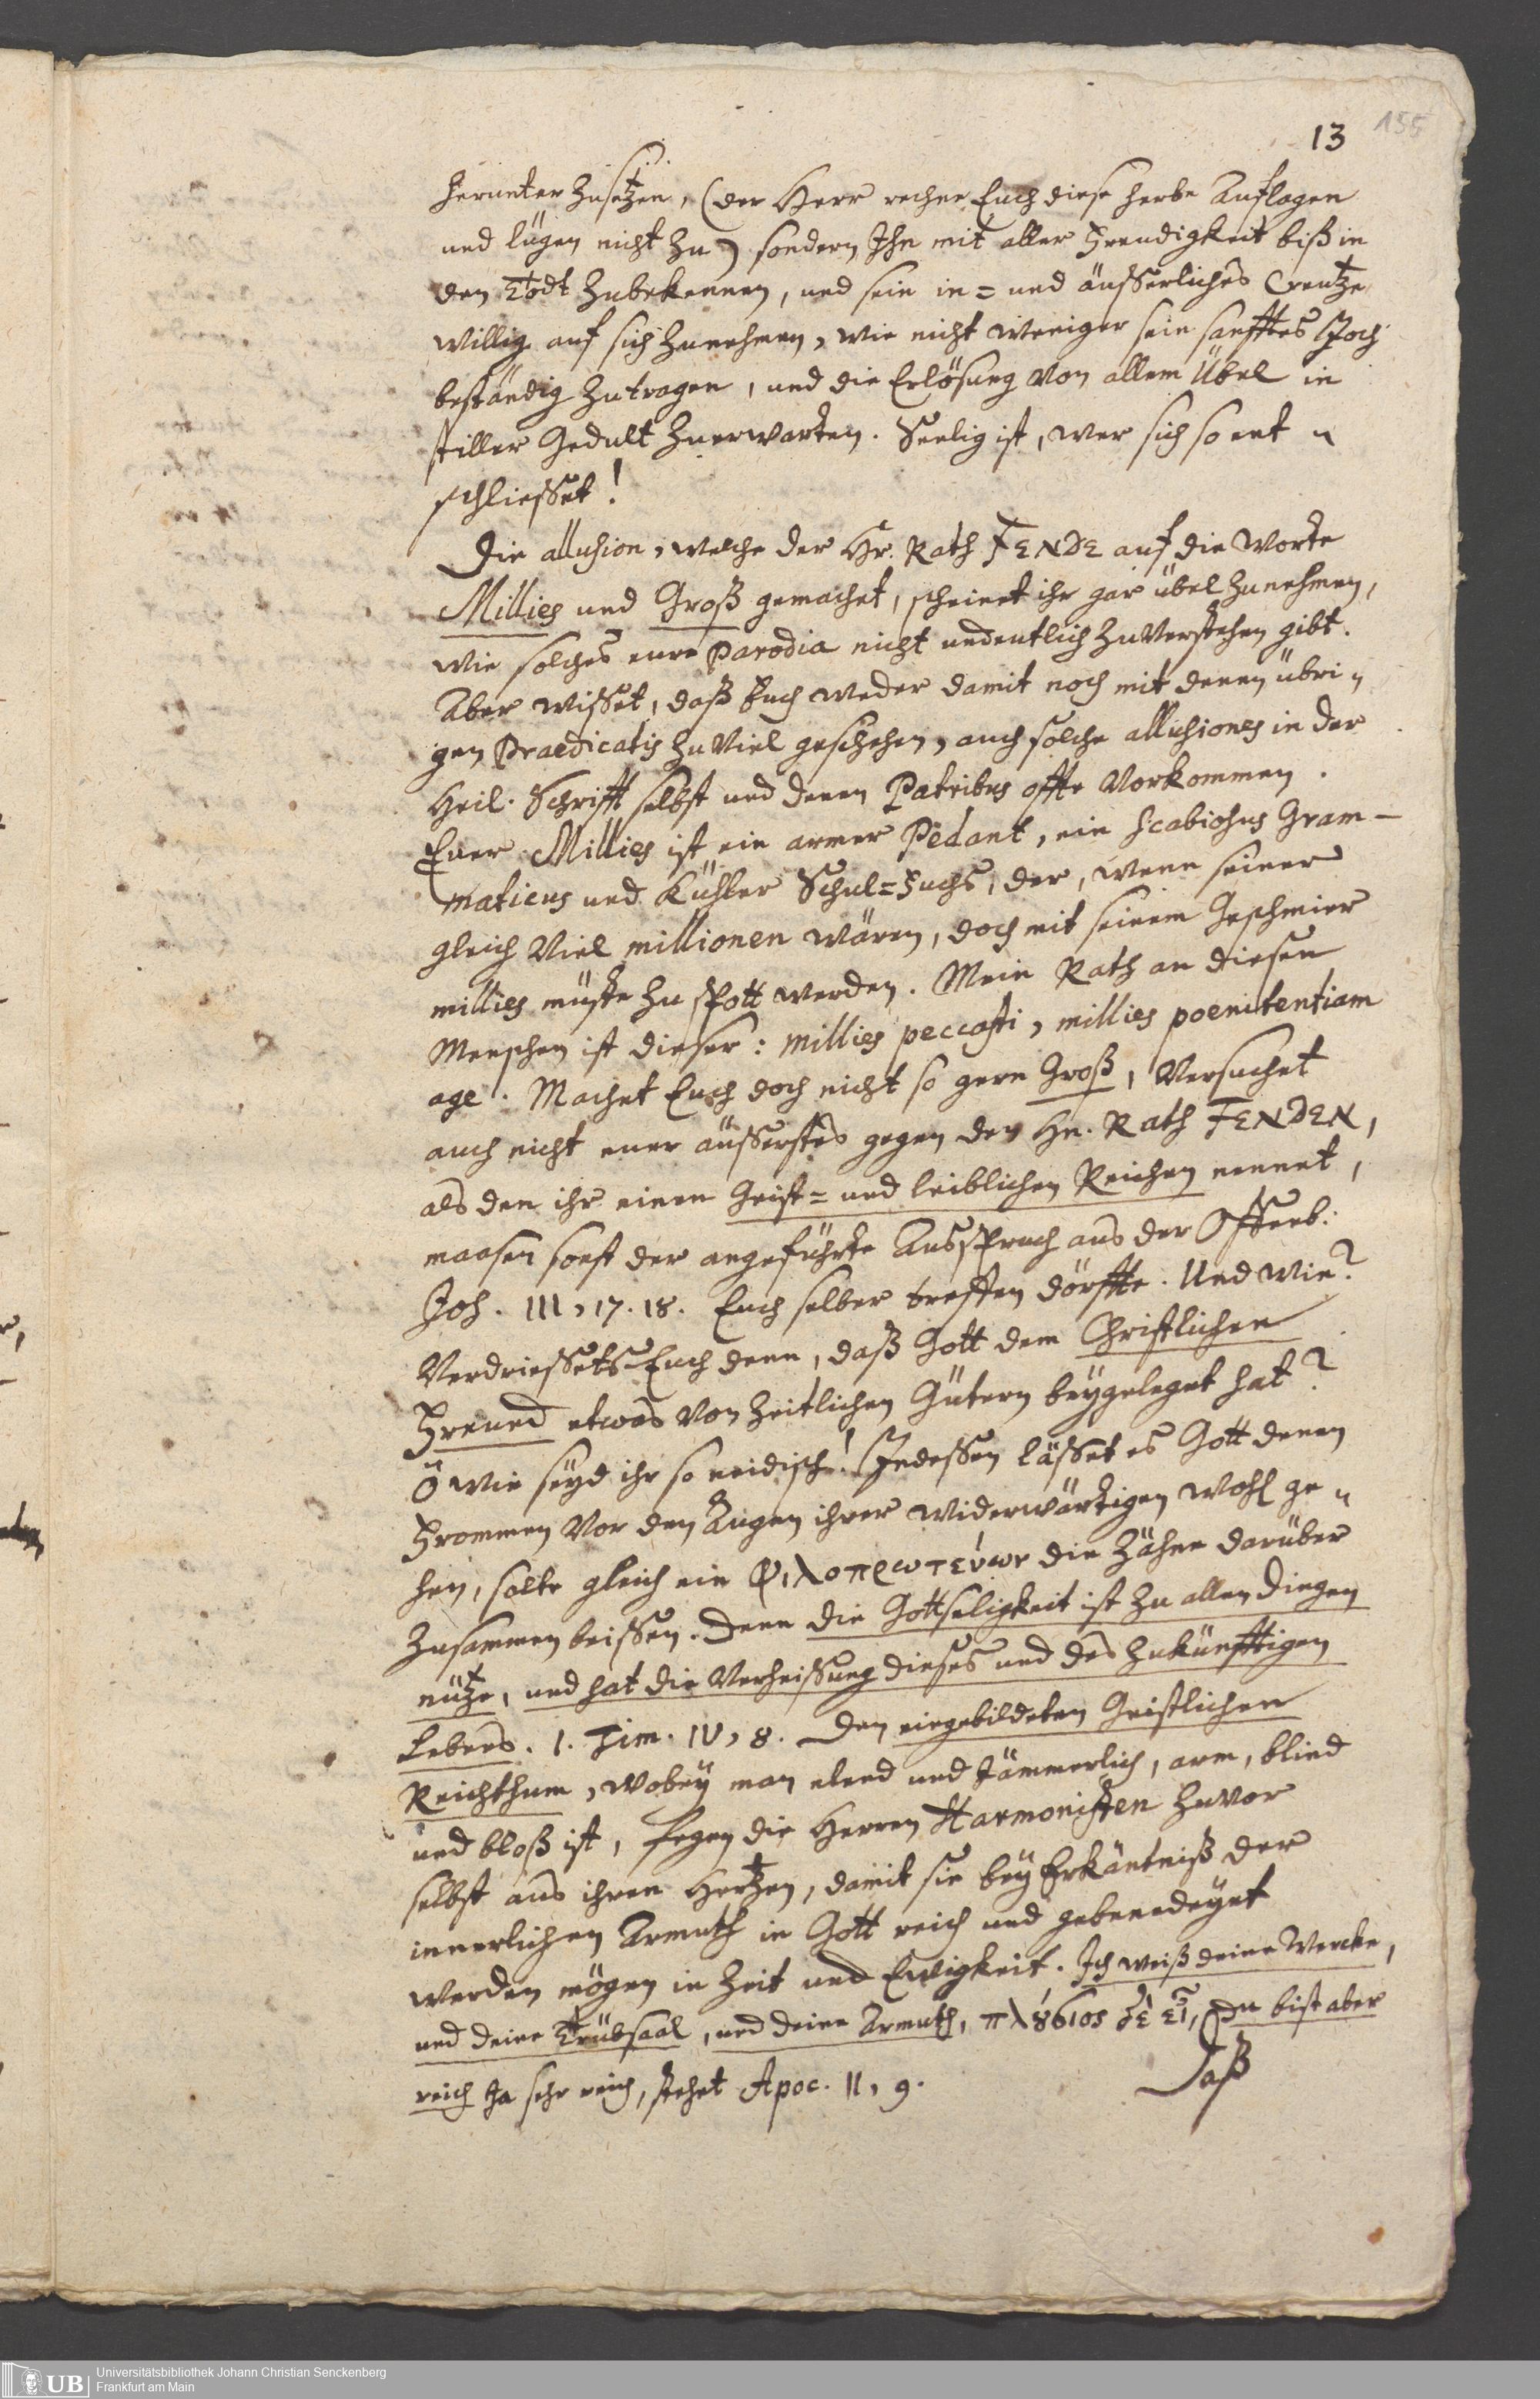 13 155
herunter zusetzen, (der Herr rechne Euch diese herbe Auflagen
und lügen nicht zu) sondern Ihn mit aller Freudigkeit biß in
den Todt zubekennen, und sein in= und äusserliches Creutze
willig auf sich zunehmen, wie nicht weniger sein sanfftes Joch
beständig zutragen, und die Erlösung von allem Übel in
stiller Gedult zuerwarten. Seelig ist, wer sich so ent=
schliesset!
Die allusion, welche der Hr. Rath FENDE auf die Worte
Millies und Groß gemachet, scheinet ihr gar übel zunehmen,
wie solches eure Parodia nicht undeutlich zuverstehen gibt.
Aber wisset, daß Euch weder damit noch mit denen übri=
gen Praedicatis zu viel geschehen, auch solche allusiones in der
Heil. Schrifft selbst und denen Patribus offte vorkommen.
Euer Millies ist ein armer Pedant, ein scabiosus Gram-
maticus und kühler Schul=Fuchs, der, wenn seiner
gleich viel millionen wären, doch mit seinem Geschmier
millies müste zu spott werden. Mein Rath an diesen
Menschen ist dieser: millies peccasti, millies poenitentiam
age. Machet Euch doch nicht so gern Groß, versuchet
auch nicht euer äusserstes gegen den Hn. Rath FENDEN,
als den ihr einen Geist= und leiblichen Reichen nennet,
maasen sonst der angeführte Ausspruch aus der Offenb.
Joh. III, 17. 18. Euch selber treffen dörffte. Und wie?
Verdriessets Euch denn, daß Gott dem Christlichen
Freund etwas von zeitlichen Gütern beygeleget hat?
Ö wie seyd ihr so neidisch! Indessen lässet es Gott denen
Frommen vor den Augen ihrer Widerwärtigen wohl ge=
hen, solte gleich ein Φιλοπρωτεύων die Zähne darüber
zusammen beissen. Denn die Gottseligkeit ist zu allen Dingen
nütze, und hat die Verheissung dieses und des zukünfftigen
Lebens. 1. Tim. IV, 8. Den eingebildeten Geistlichen
Reichthum, wobey man elend und jämmerlich, arm, blind
und bloß ist, fegen die Herren Harmonisten zuvor
selbst aus ihren Hertzen, damit sie bey Erkäntniß der
innerlichen Armuth in Gott reich und gebenedeyet
werden mögen in Zeit und Ewigkeit. Ich weiß deine Wercke,
und deine Trübsaal, und deine Armuth, πλȣ́σιος δὲ εἶ, Du bist aber
reich ja sehr reich, stehet Apoc. II, 9.
Daß
UB Universitätsbibliothek Johann Christian Senckenberg
Frankfurt am Main